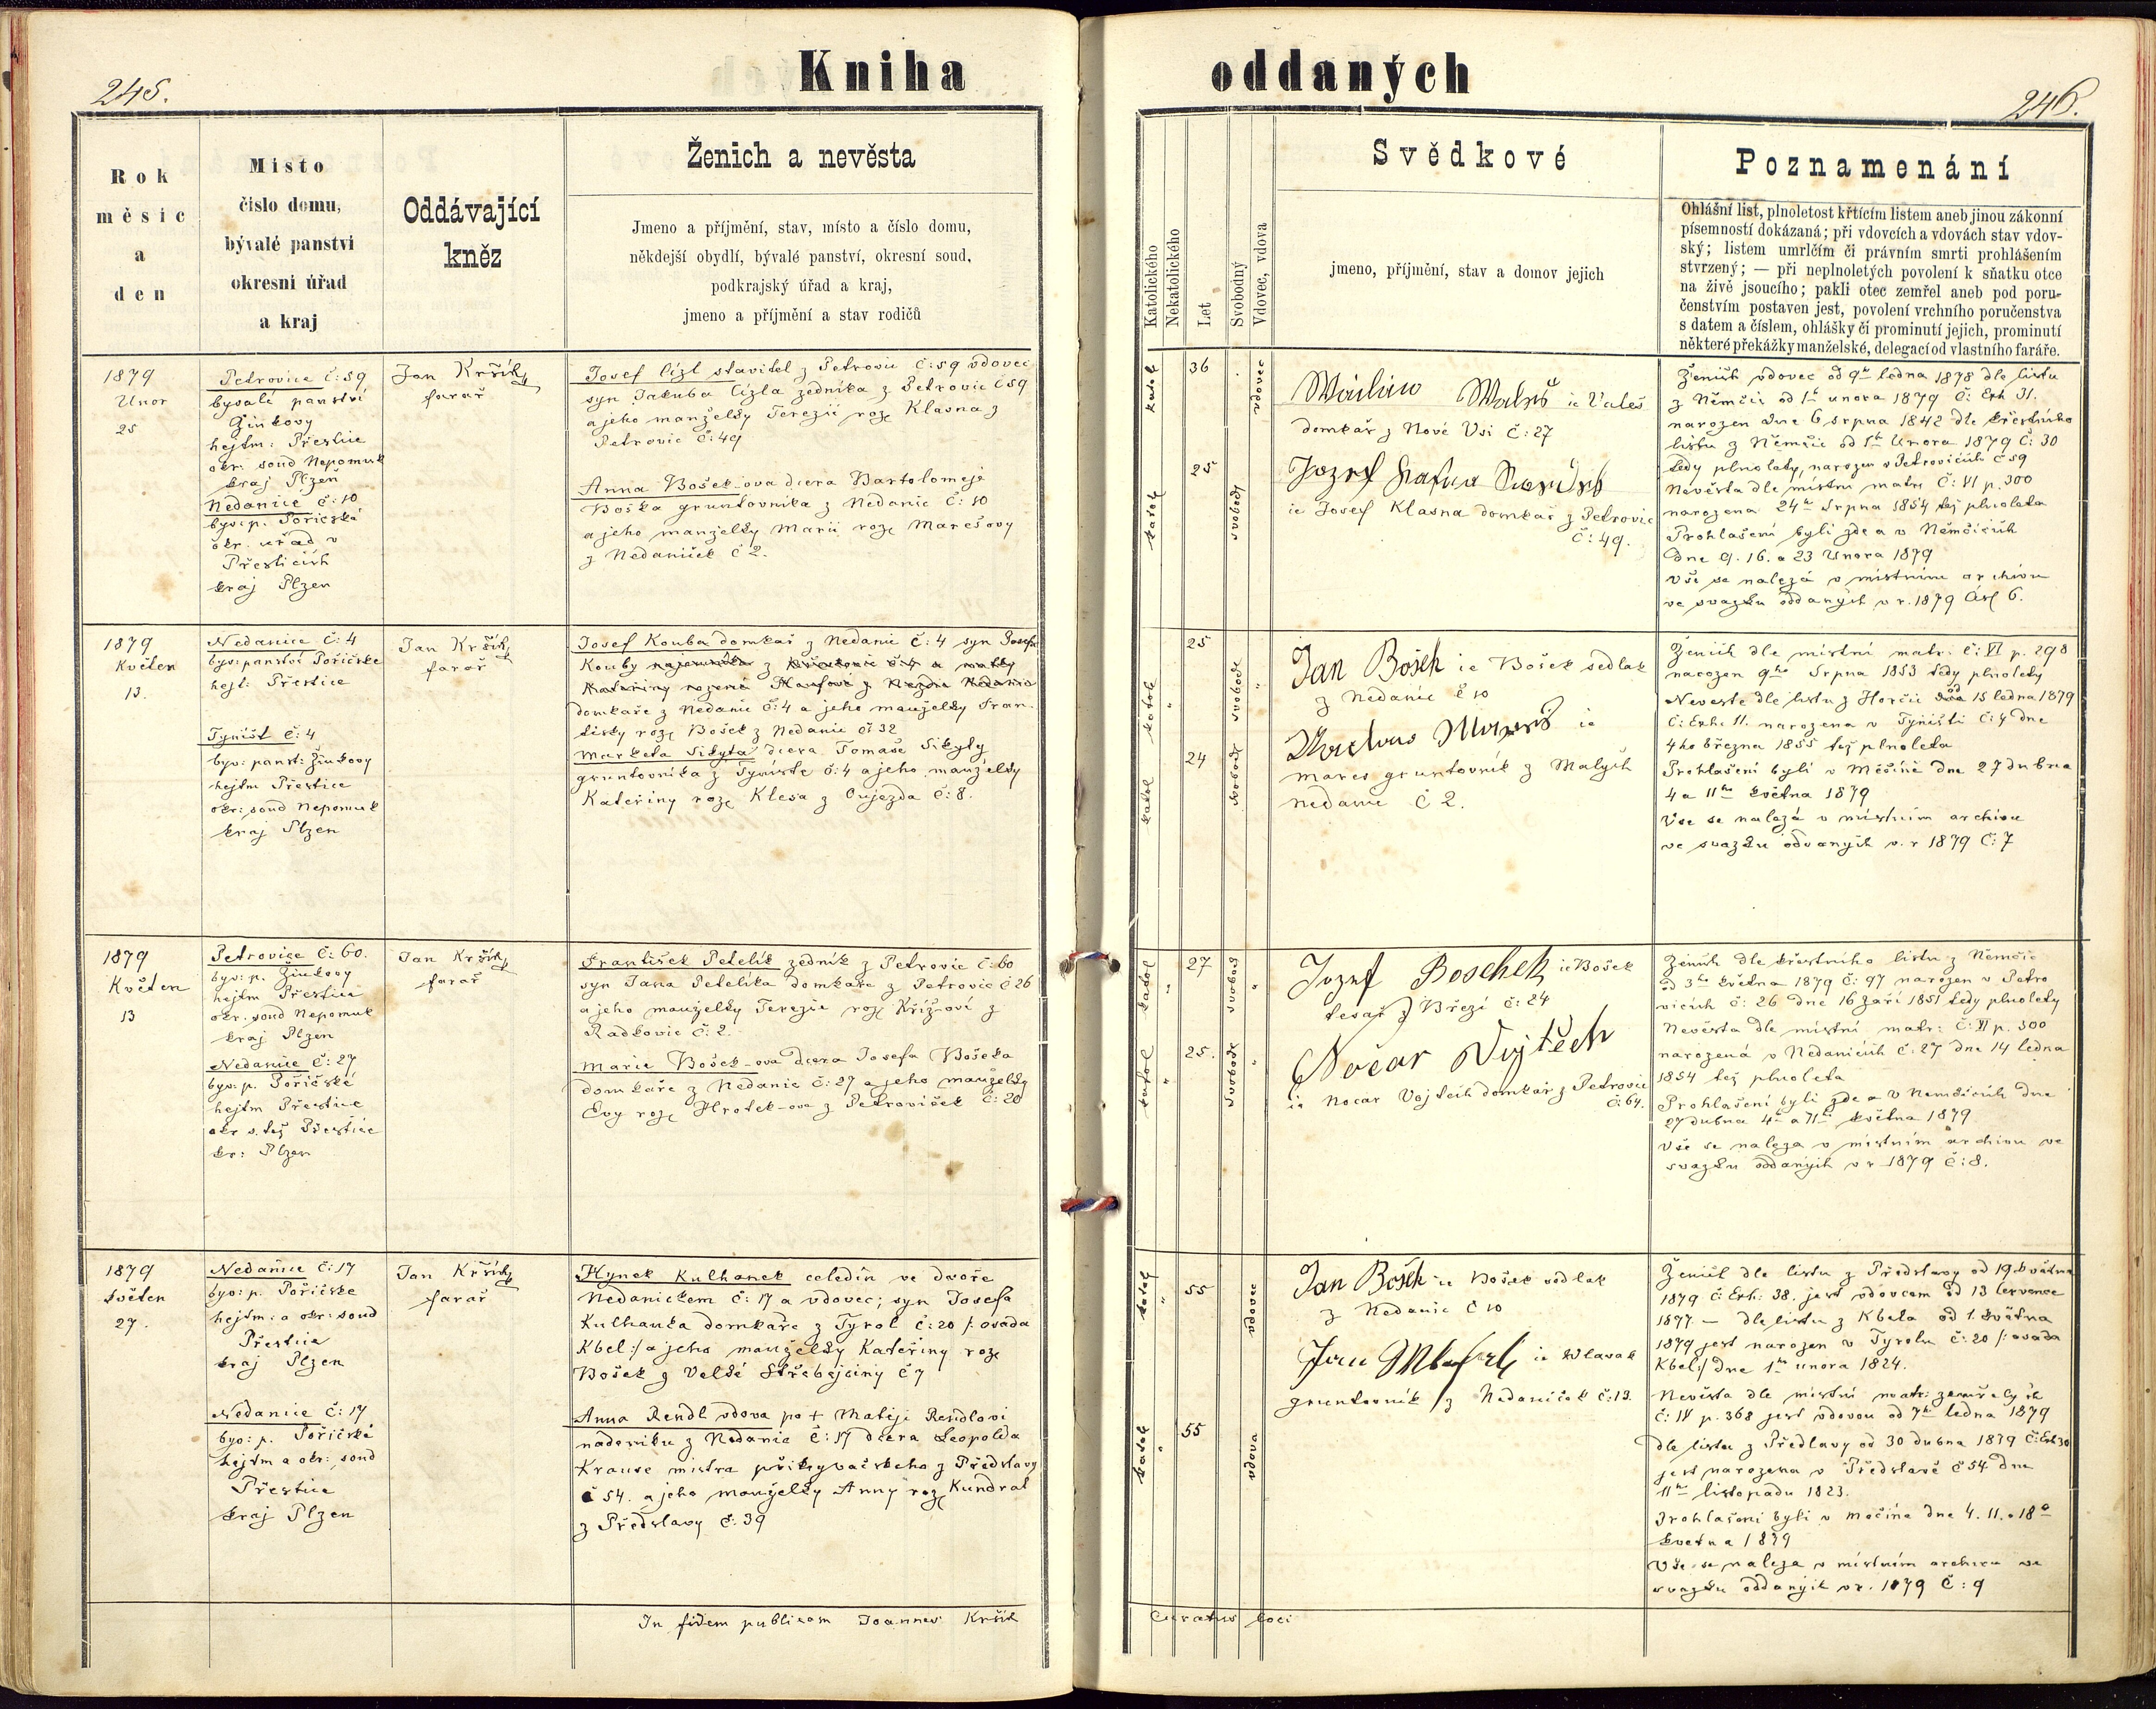 245.
Kniha
oddaných
246.
Rok
měsíc
a
den
Místo
číslo domu,
bývalé panství
okresní úřad
a kraj
Oddávající
kněz
Ženich a nevěsta
Jmeno a příjmění, stav, místo a číslo domu,
někdejší obydlí, bývalé panství, okresní soud,
podkrajský úřad a kraj,
jmeno a příjmění a stav rodičů
Katolického
Nekatolického
Let
Svobodný
Vdovec, vdova
Svědkové
jmeno, příjmění, stav a domov jejich
Poznamenání
Ohlášní list, plnoletost křtícím listem aneb jinou zákonní
písemností dokázaná; při vdovcích a vdovách stav vdov-
ský; listem umrlčím či právním smrti prohlášením
stvrzený; — při neplnoletých povolení k sňatku otce
na živě jsoucího; pakli otec zemřel aneb pod poru-
čenstvím postaven jest, povolení vrchního poručenstva
s datem a číslem, ohlášky či prominutí jejich, prominutí
některé překážky manželské, delegací od vlastního faráře.
1879
Unor
25
Petrovice č: 59
byvalé panství
Žinkovy
hejtm: Přestice
okr. soud Nepomuk
kraj Plzeň
Nedanice č: 10
byv: p. Poříčské
okr. uřad v
Přesticích
kraj Plzen
Jan Kršík
farář
Josef Cízl stavitel z Petrovic č: 59 vdovec
syn Jakuba Cízla zedníka z Petrovic č 59
a jeho manželky Terezie roze Klasna z
Petrovic č: 49
Anna Bošek-ova dcera Bartolomeje
Boška gruntovníka z Nedanic č: 10
a jeho manželky Marii roze Marešovy
z Nedaniček č 2.
katol
36
vdovec
katol
25
svobod
Walsch ie Valeš
domkář z Nové Vsi č: 27
Jozef
ie Josef Klasna domkař z Petrovic
č: 49.
Ženich vdovec od 9ho ledna 1878 dle listu
z Němčic od 1ho unora 1879 č: Exh 31.
narozen dne 6 srpna 1842 dle křestního
listu z Němčic od 1ho Unora 1879 č: 30
tedy plnoletý, narozen v Petrovicích č 59
Nevěsta dle místní matr č: VI p. 300
narozena 24ho Srpna 1854 též plnoleta
Prohlašeni byli zde a v Němčicích
dne 9. 16. a 23 Unora 1879
vše se nalezá v místním archivu
ve svazku oddaných v r. 1879 čís 6.
1879
Květen
13.
Nedanice č: 4
byv: panství Poříčske
hejt: Přestice
Týnišť č: 4
byv: panst: Žinkovy
hejtm Přestice
okr: soud Nepomuk
kraj Plzen
Jan Kršík
farář
Josef Kouba domkař z Nedanic č: 4 syn Josefa
Kouby
domkaře z Nedanic č: 4 a jeho manželky Fran-
tisky roze Bošek z Nedanic č: 32
Marketa Sikyta dcera Tomaše Sikyty
gruntovníka z Tyniště č: 4 a jeho manželky
Kateřiny roze Klesa z Oujezda č: 8.
katol
"
25
svobod
"
katol
24
svobod
Jan Bošek ie Bošek sedlak
z Nedanic č 10
ie
Mares gruntovník z Malych
Nedanic č 2.
Ženich dle místní matr. č: VI p. 298
narozen 9ho Srpna 1853 tedy plnoletý
Nevesta dle listu z Horčic od 15 ledna 1879
č: Exh: 11. narozena v Týništi č: 4 dne
4ho března 1855 též plnoleta
Prohlašeni byli v Měčíně dne 27 dubna
4 a 11ho května 1879
Vše se nalezá v místním archivu
ve svazku oddaných v. r 1879 č: 7
1879
Květen
13
Petrovice č: 60.
byv: p. Žinkovy
hejtm Přestice
okr. soud Nepomuk
kraj Plzen
Nedanice č: 27
byv: p. Poříčské
hejtm Přestice
okr s. též Přestice
kr: Plzen
Jan Kršík
farář
František Petelík zedník z Petrovic č: 60
syn Jana Petelíka domkaře z Petrovic č 26
a jeho manželky Terezie roze Křížoví z
Radkovic č: 2.
Marie Bošek-ova dcera Josefa Bošeka
domkaře z Nedanic č: 27 a jeho manželky
Evy roze Hrotek-ova z Petroviček č: 20
katol
"
27
svobod
"
katol
"
25.
svobod
"
Jozef Boschek ie Bošek
tesař z Březí č: 24
Nočar Vojtěch
ie Nocar Vojtěch domkář z Petrovic
č: 64.
Ženich dle křestního listu z Němčic
od 3ho května 1879 č: 97 narozen v Petro
vicích č: 26 dne 16 září 1851 tedy plnoletý
Nevěsta dle místní matr: č: VI p. 300
narozená v Nedanicích č: 27 dne 14 ledna
1854 též plnoleta
Prohlašeni byli zde a v Němčicích dne
27 dubna 4ho a 11ho května 1879
vše se naleza v místním archivu ve
svazku oddaných v r 1879 č: 8.
1879
květen
27.
Nedanice č: 17
byv: p. Poříčske
hejtm: a okr: soud
Přestice
kraj Plzen
Nedanice č: 17
byv: p. Poříčské
hejtm a okr: soud
Přestice
kraj Plzen
Jan Kršík
farář
Hynek Kulhanek celedín ve dvoře
Nedanickem č: 17 a vdovec; syn Josefa
Kulhanka domkaře z Tyrol č: 20 /: osada
Kbel :/ a jeho manželky Kateřiny roze
Bošek z Velké Střebejčiny č 7
Anna Rendl vdova po + Matěji Rendlovi
nadeniku z Nedanic č: 17 dcera Leopolda
Krause mistra přikryvačskeho z Předslavy
č 54. a jeho manželky Anny roze Kundrat
z Předslavy č: 39
katol
"
55
vdovec
katol
"
55
vdova
Jan Bošek ie Bošek sedlak
z Nedanic č 10
Jan
gruntovník z Nedaniček č: 13.
Ženich dle listu z Předslavy od 19. května
1879 č Exh: 38. jest vdovcem od 13 července
1877 — dle listu z Kbela od 1. května
1879 jest narozen v Tyrolu č: 20 /: osada
Kbel :/ dne 1ho unora 1824.
Nevěsta dle místní matr: zemřelých
č: IV p. 368 jest vdovou od 7ho ledna 1879
dle listu z Předlavy od 30 dubna 1879 č: Exh 30
jest narozena v Předslavě č 54 dne
11ho listopadu 1823.
Prohlašeni byli v Mečíne dne 4. 11. a 18o
kvetna 1879
Vše se naleza v místním archivu ve
svazku oddaných v r. 1879 č: 9
In fidem publicam Joannes Kršík
Curatus loci